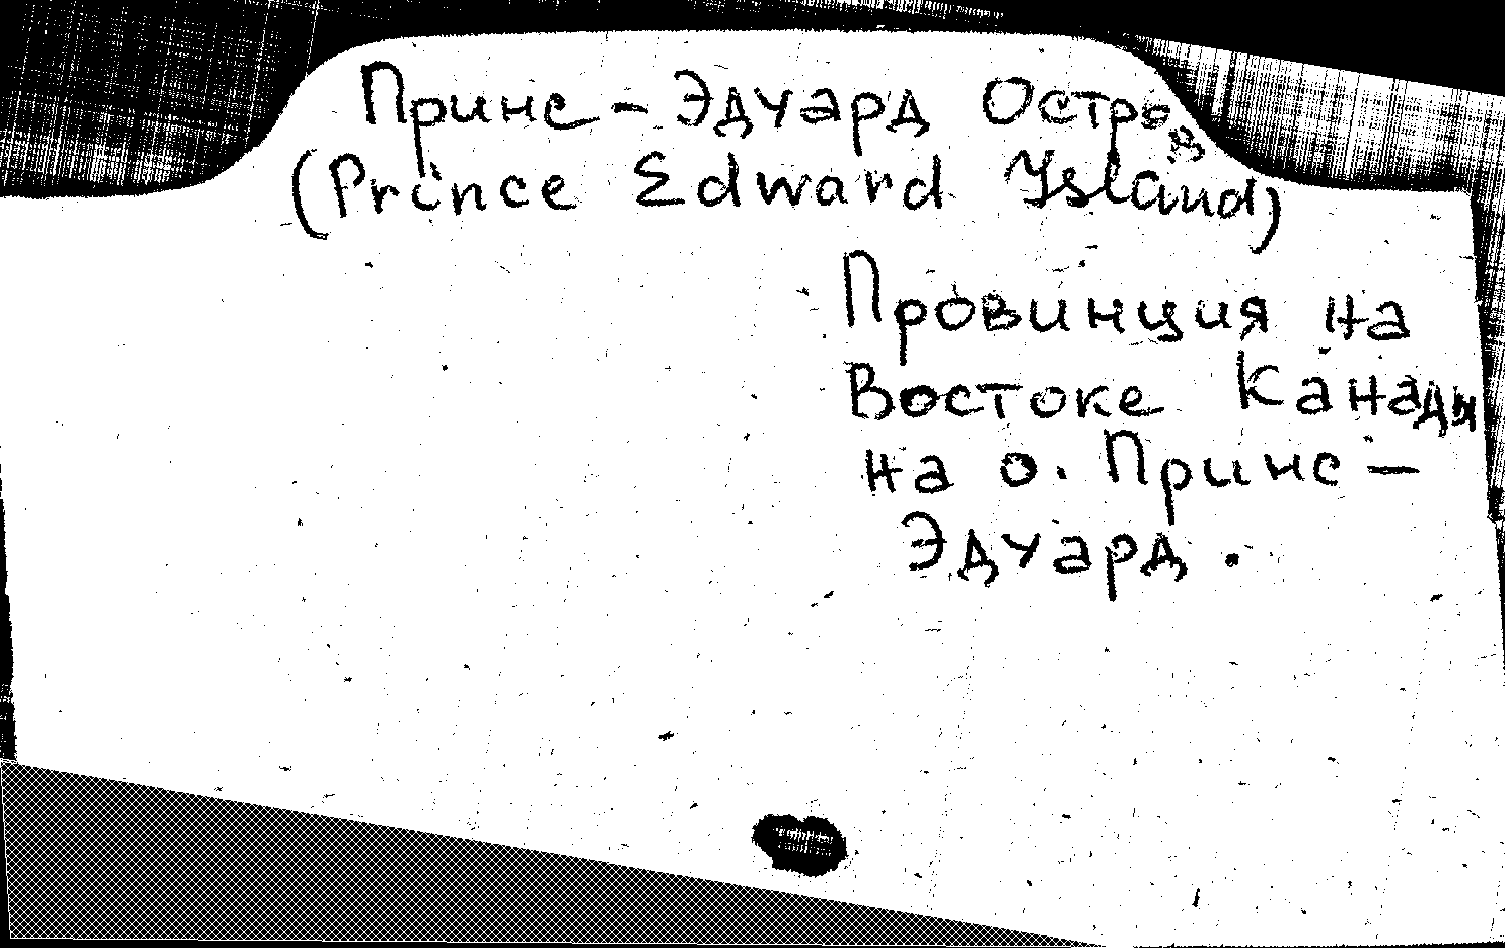 Принс-Эдуард Остров
(Prince Edward Island)
Провинция на
Востоке Канады
на о. Принс-
Эдуард.